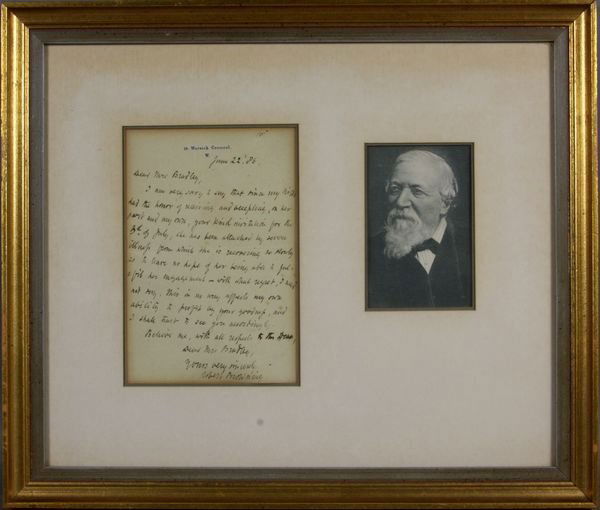 19 Warwick Crescent,
W.
June 22. '86.
Dear Mrs Bradley,
I am very sorry to say that since my
had the honor of receiving and accepting, on her
part and my own, your kind invitation for the
of July, she has been attacked by severe
illness from which she is recovering so slowly
as to leave no hope of her being able to ful-
-fil her engagement - with what regret, I need
not say. This in no way affects my own
ability to profit by your goodness, and
I shall trust to see you accordingly.
Believe me, with all respects to the Dean,
Dear Mrs Bradley,
Yours very sincerely
Robert Browning